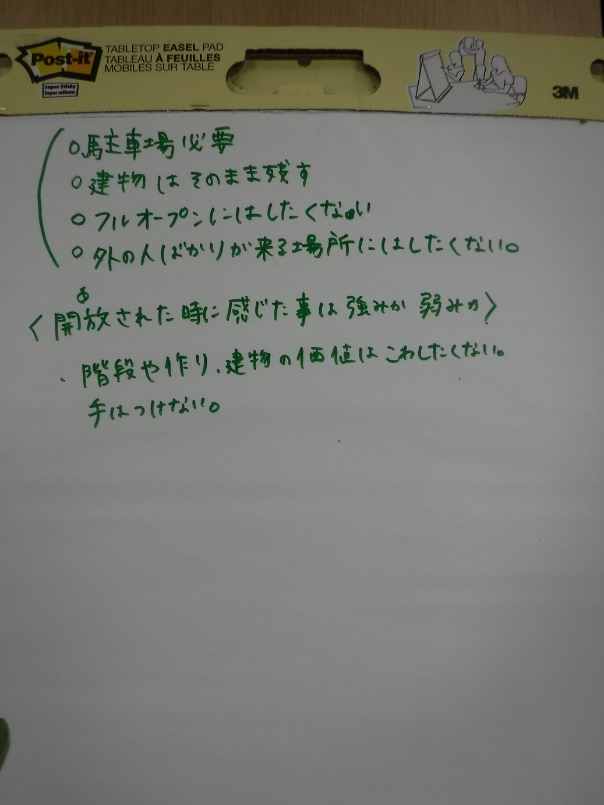 Post-it
Super Sticky
TABLETOP EASEL PAD
TABLEAU À FEUILLES
MOBILES SUR TABLE
3M
○駐車場必要
○建物はそのまま残す
○フルオープンにはしたくない
○外の人ばかりが来る場所にはしたくない。
〈開放された時に感じた事は強みか 弱みか〉
・階段や作り、建物の価値はこわしたくない。
手はつけない。